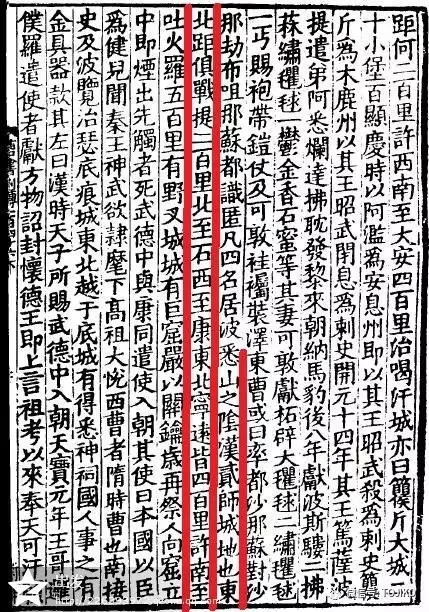 距何二百里許西南至大安四百里治喝汗城亦曰籧斤大城
十小堡百顯慶時以阿濫為安息州即以其王昭武殺為刺史籧
斤為木鹿州以其王昭武閉息為刺史開元十四年其王篤薩波
提遣弟阿悉爛達拂耽發黎來朝納馬豹後八年獻波斯騾二拂
菻繡氍毬一鬱金香石蜜等其妻可敦獻柘辟大氍毬二繡氍毬
一丐賜袍帶鎧仗及可敦袿襡裝澤東曹或曰率都沙那蘇對沙
那劫布呾那蘇都識匿凡四名居波悉山之陰漢貳師城地也東
北距俱戰提二百里北至石西至康東北寧遠皆四百里許南至
吐火羅五百里有野叉城城有巨窟嚴以關鑰歲再祭人向窟立
中即煙出先觸者死武德中與康同遣使入朝其使曰本國以臣
為健兒聞秦王神武欲隸麾下高祖大悅西曹者隋時曹也南接
史及波覽治瑟底痕城東北越于底城有得悉神祠國人事之有
金具器款其左曰漢時天子所賜武德中入朝天寶元年王哥邏
僕羅遣使者獻方物詔封懷德王即上言祖考以來奉天可汗